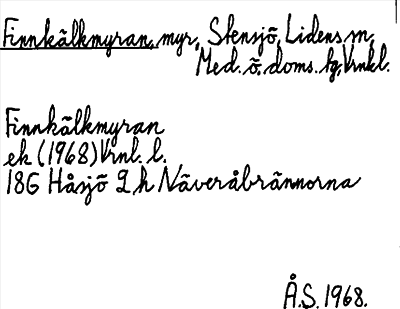 Finnkälkmyran, myr, Stensjö, Lidens sn,
Med. ö. doms. hg, Vrnkl.
Finnkälkmyran
ek (1968) Vrnl. l.
18G Håsjö 2 h Näveråbrännorna
Å.S. 1968.